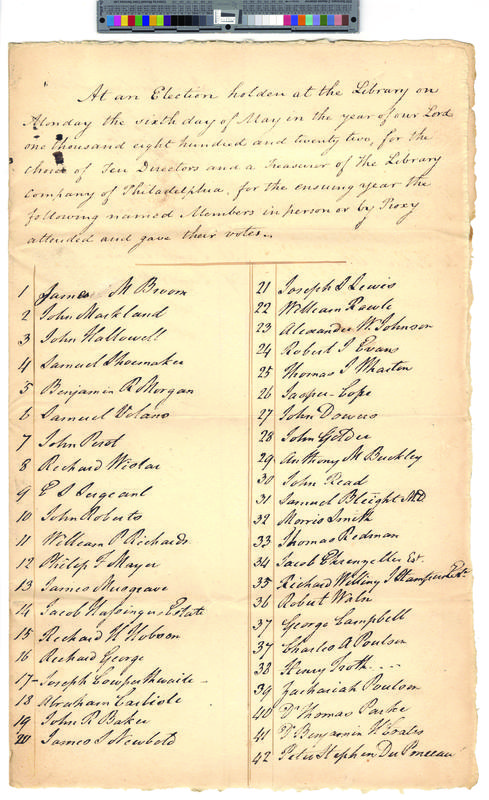 At an Election holden at the Library on
Monday the sixth day of May in the year of our Lord
one thousand eight hundred and twenty two, for the
choice of Ten Directors and a Treasurer of The Library
Company of Philadelphia, for the ensuing year the
following named Members in person or by Proxy
attended and gave their votes.
1 James M Broom
2 John Markland
3 John Hallowell
4 Samuel Shoemaker
5 Benjamin R Morgan
6 Samuel Volans
7 John Perot
8 Richard Wistar
9 E S Sergeant
10 John Roberts
11 William P Richards
12 Philip F Mayer
13 James Musgrave
14 Jacob Estate
15 Richard H Hobson
16 Richard George
17 Joseph Cowperthwaite
18 Abraham Carlisle
19 John R Baker
20 James S Newbold
21 Joseph S Lewis
22 William Rawle
23 Alexander W. Johnson
24 Robert J Evans
25 Thomas I Wharton
26 Jasper Cope
27 John Dowers
28 John Golder
29 Anthony M Buckley
30 John Read
31 Samuel Bleight MD
32 Morris Smith
33 Thomas Redman
34 Jacob Ehrenzeller Est.
35 Richard Willing J Est.
36 Robert Waln
37 George Campbell
37 Charles A Poulson
38 Henry Troth
39 Zachariah Poulson
40 Dr Thomas Parke
41 Dr Benjamin H Coates
42 Peter Stephen Du Ponceau